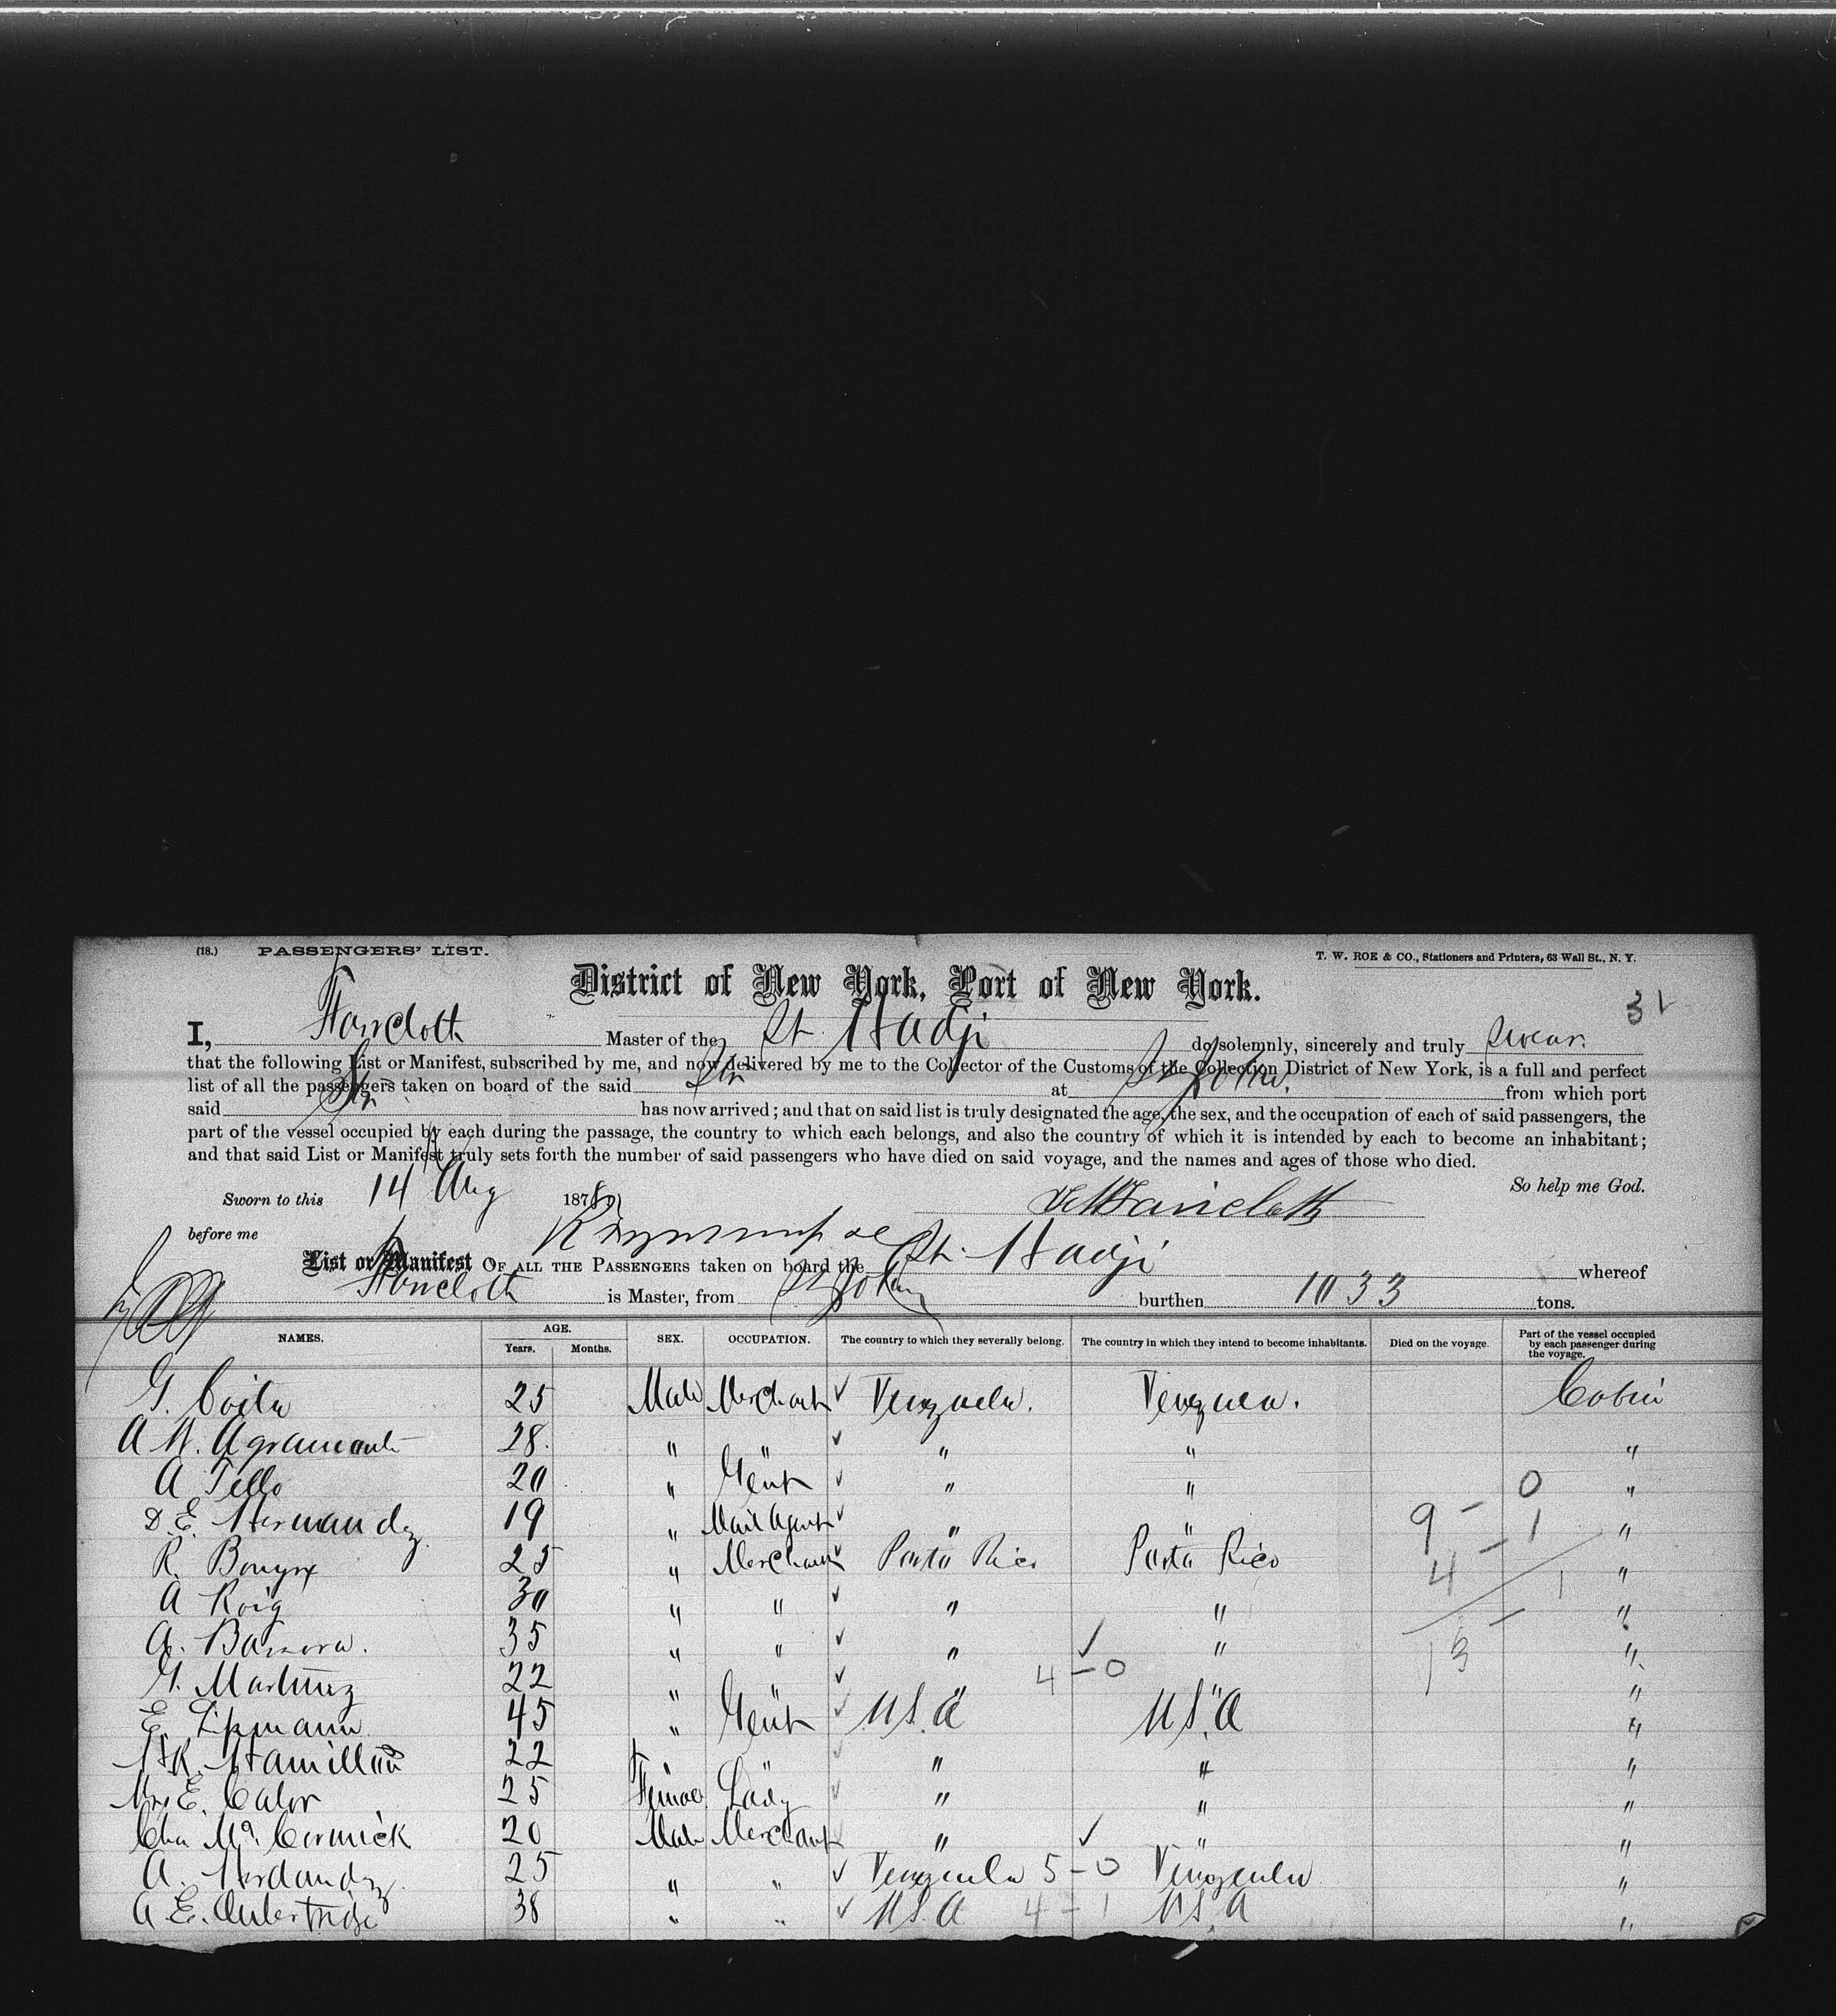 (18.) PASSENGERS' LIST.
T. W. ROE & CO., Stationers and Printers, 63 Wall St., N. Y.
District of New York, Port of New York.
31
I, Faircloth Master of the St. Hadji do solemnly, sincerely and truly swear
that the following List or Manifest, subscribed by me, and now delivered by me to the Collector of the Customs of the Collection District of New York, is a full and perfect
list of all the passengers taken on board of the said Str at St Johns. from which port
said Str has now arrived; and that on said list is truly designated the age, the sex, and the occupation of each of said passengers, the
part of the vessel occupied by each during the passage, the country to which each belongs, and also the country of which it is intended by each to become an inhabitant;
and that said List or Manifest truly sets forth the number of said passengers who have died on said voyage, and the names and ages of those who died.
So help me God.
Sworn to this 14 Aug 187
Faircloth
before me
List or Manifest OF ALL THE PASSENGERS taken on board the St. Hadji whereof
Faircloth is Master, from St John burthen 1033 tons.
NAMES. AGE. Years. Months. SEX. OCCUPATION. The country to which they severally belong. The country in which they intend to become inhabitants. Died on the voyage. Part of the vessel occupied by each passenger during the voyage.
G. 25 Male Merchant Venezuela. Venezuela. Cabin
A M. Agramonte 28. " " " " "
A Tello 20 " Gent " " 0 "
D. E. Hernandez 19 " Mail Agent " " 9 - 1 "
R. 25 " Merchant Porto Rico Porto Rico 4 - 1 "
A Roig 30 " " " " "
A. 35 " " " " 13 "
G. Martinez 22 " " " 4 - 0 " "
E. Lipmann 45 " Gent U.S.A U.S.A "
H R. Hamilton 22 " " " "
Mrs E. Calor 25 Female Lady " " "
Chs Mc. Cormick 20 Male Merchant " " "
A. 25 " " Venezuela 5 - 0 Venezuela "
A E. Outerbridge 38 " " U.S.A 4 - 1 U.S.A "